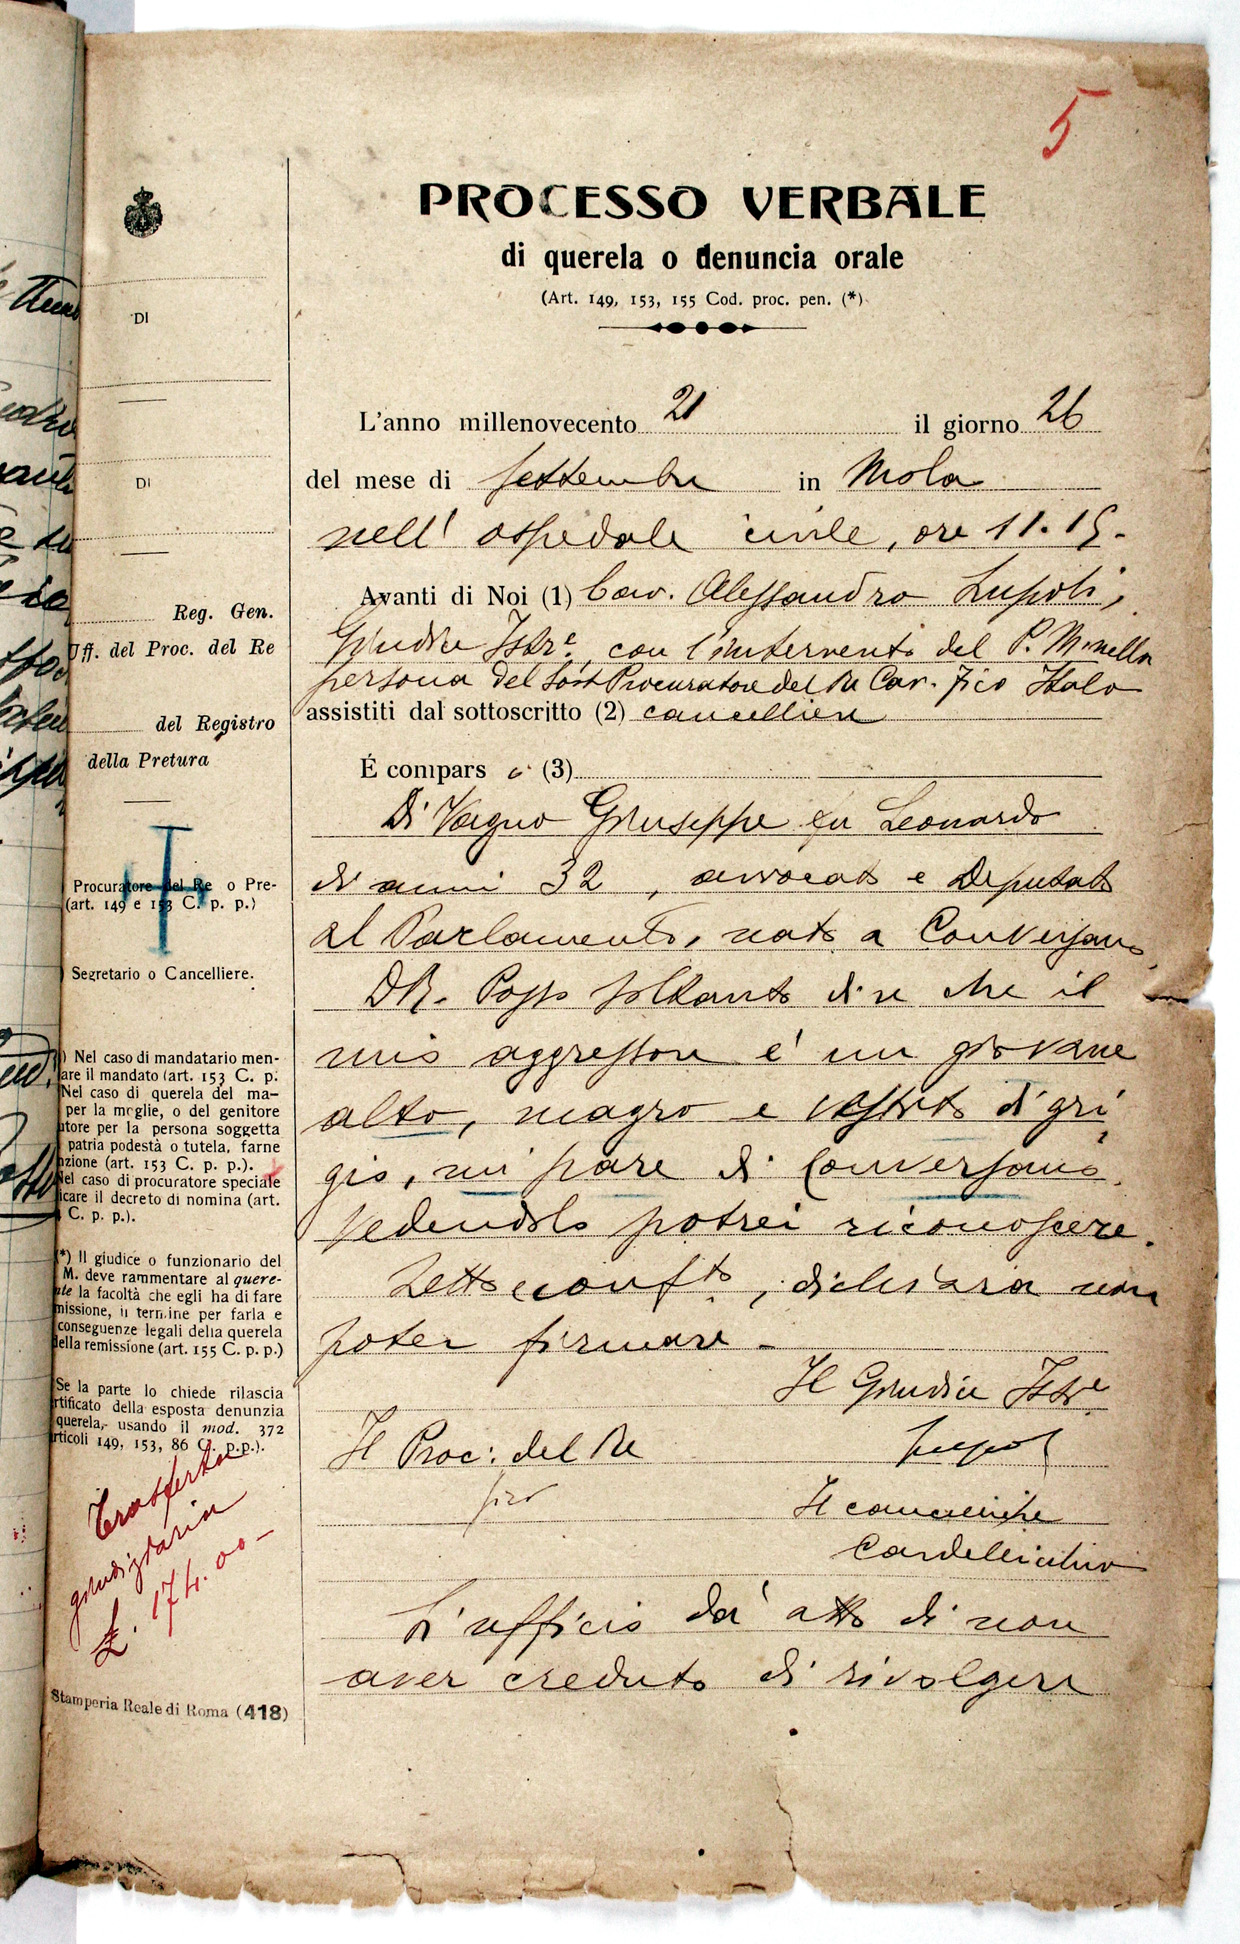 5
PROCESSO VERBALE
di querela o denuncia orale
(Art. 149, 153, 155 Cod. proc. pen. (*)
L'anno millenovecento 21 il giorno 26
del mese di Settembre in Mola
nell' ospedale civile, ore 11.15.
Avanti di Noi (1) Cav. Alessandro Lupoli,
Giudice Istre. con l'intervento del P. M. nella
persona del Sost Procuratore del Re Cav. Fico Italo
assistiti dal sottoscritto (2) cancelliere
É compars o (3)
Di Vagno Giuseppe fu Leonardo
di anni 32, avvocato e Deputato
al Parlamento, nato a Conversano
DR. Posso soltanto dire che il
mio aggressore e' un giovane
alto, magro e vestito di gri
gio, mi pare di Conversano.
Vedendolo potrei riconoscere.
Letto confto, dichiara non
poter firmare.
Il Giudice Istre
Il Proc: del Re
Lupoli
Fico
Il cancelliere
Cardellicchio
L'ufficio da' atto di non
aver creduto di rivolgere
DI
DI
Reg. Gen.
Uff. del Proc. del Re
del Registro
della Pretura
Procuratore del Re o Pre-
(art. 149 e 153 C. p. p.)
Segretario o Cancelliere.
) Nel caso di mandatario men-
are il mandato (art. 153 C. p.
Nel caso di querela del ma-
per la moglie, o del genitore
utore per la persona soggetta
patria podestà o tutela, farne
nzione (art. 153 C. p. p.).
Nel caso di procuratore speciale
icare il decreto di nomina (art.
C. p. p.).
(*) Il giudice o funzionario del
M. deve rammentare al quere-
nte la facoltà che egli ha di fare
missione, il termine per farla e
conseguenze legali della querela
della remissione (art. 155 C. p. p.)
Se la parte lo chiede rilascia
rtificato della esposta denunzia
querela, usando il mod. 372
rticoli 149, 153, 86 C. p.p.).
Trasferta
giudiziaria
£. 174.00-
Stamperia Reale di Roma (418)